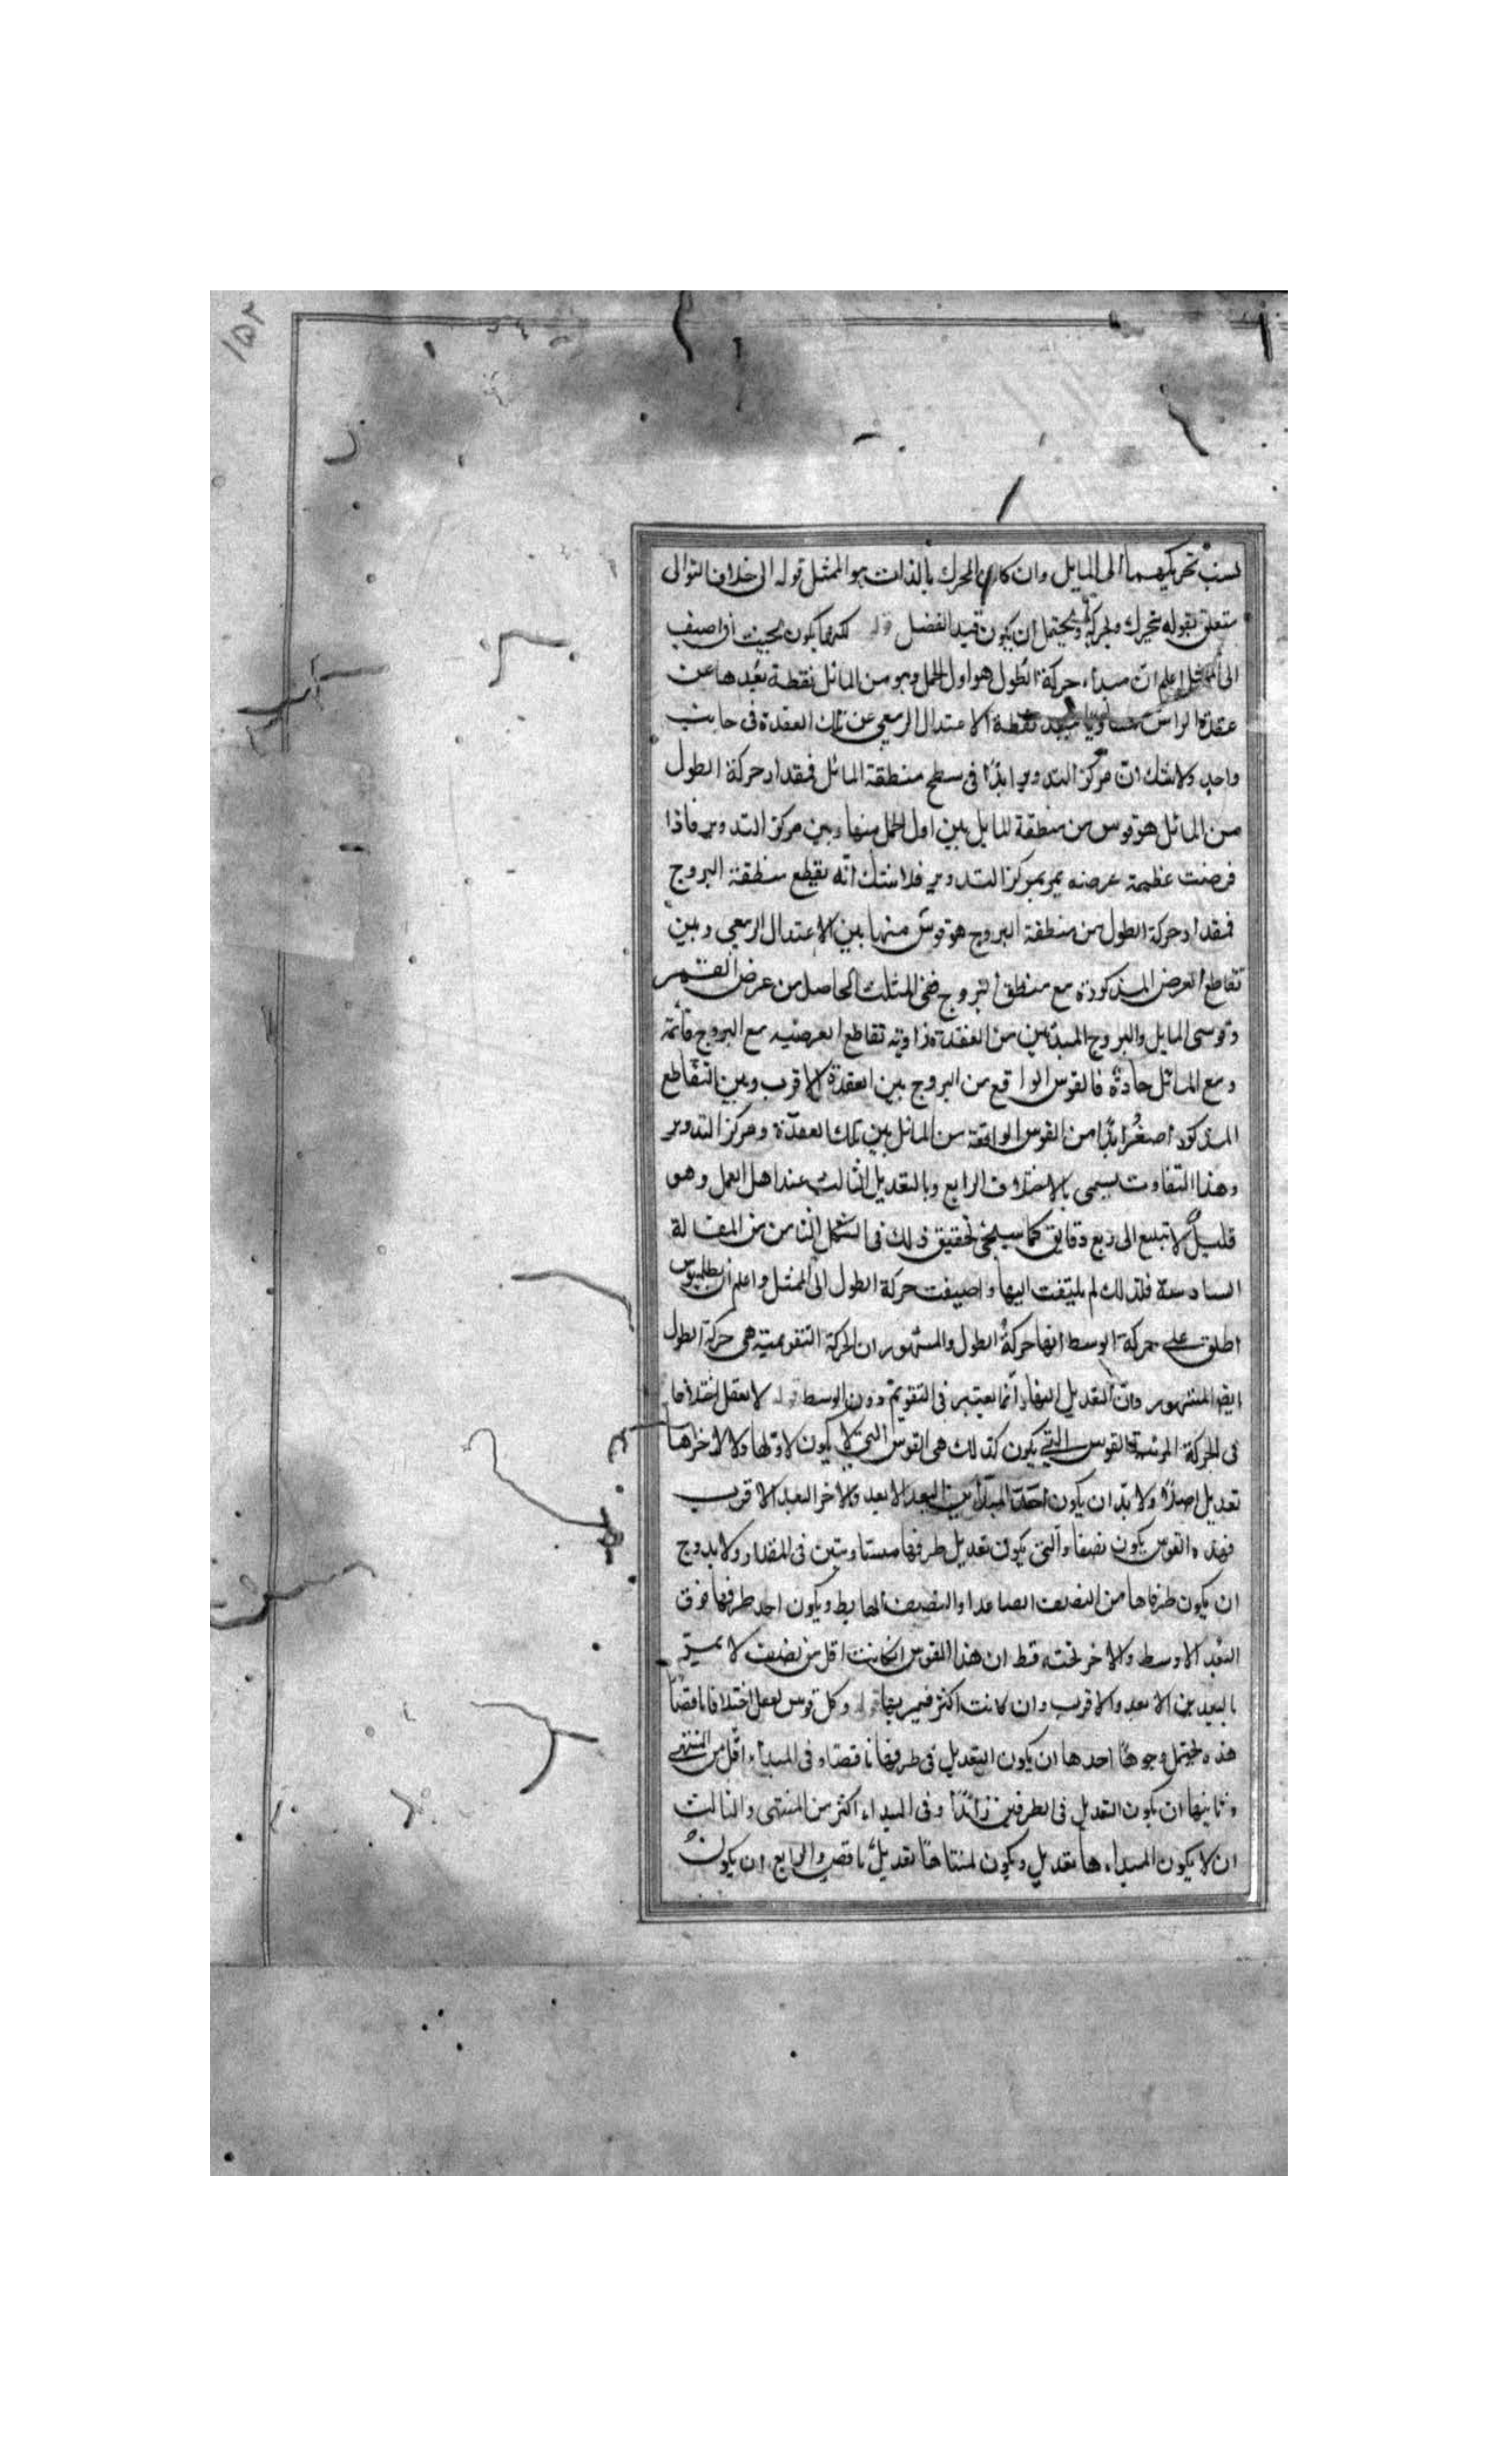 ١٥٢
نسب تحريكهما الى المايل وان كان المحرك بالذات هو الممثل قوله الى خلاف التوالى
متعلق بقوله يتحرك وبحركة ويحتمل ان يكون قيد الفضل قوله لكنها يكون بحيث اذا اضيف
الى الممثل اعلم ان مبداء حركة الطول هو اول الحمل وهو من المائل نقطة بعدها عن
عقدة الراس مساويا لبعد نقطة الاعتدال الربيعى عن تلك العقدة فى جانب
واحد ولا شك ان مركز التدوير ابدًا فى سطح منطقة المائل فمقدار حركة الطول
من المائل هو قوس من منطقة المايل بين اول الحمل منها وبين مركز التدوير فاذا
فرضت عظيمة عرضه يمر بمركز التدوير فلا شك انه يقطع منطقة البروج
فمقدار حركة الطول من منطقة البروج هو قوس منها بين الاعتدال الربيعى وبين
تقاطع العرض المذكورة مع منطقة البروج ففى المثلث الحاصل من عرض القمر
وقوسى المايل والبروج المبتدئين من العقدة زاوية تقاطع العرضيه مع البروج قائمة
ومع المائل حادة فالقوس الواقع من البروج بين العقدة الاقرب وبين التقاطع
المذكور اصغر ابدًا من القوس الواقعة من المائل بين تلك العقدة ومركز التدوير
وهذا التفاوت يسمى بالاختلاف الرابع وبالتعديل الثالث عند اهل العمل وهو
قليل لا تبلغ الى ربع دقايق كما سيجئ تحقيق ذلك فى الشكل الثامن من المقالة
السادسة فلذلك لم يلتفت اليها واضيفت حركة الطول الى الممثل واعلم ان بطلميوس
اطلق على حركة الوسط انها حركة الطول والمشهور ان الحركة التقويمية هى حركة الطول
ايضا المشهور وان التعديل انما يعتبر فى التقويم دون الوسط قوله لا يفعل اختلافا
فى الحركة المرئية القوس التى يكون كذلك هى القوس التى لا يكون لاولها ولا لاخرها
تعديل اصلا ولا بد ان يكون احد المبدأين البعد الابعد والاخر البعد الاقرب
فهذه القوس يكون نصفا والتى يكون تعديل طرفها متساويتين فى المقدار ولابد وح
ان يكون طرفاها من النصف الصاعد او النصف الهابط ويكون احد طرفيها فوق
البعد الاوسط والاخر تحته قط ان هذا القوس ان كانت اقل من نصف لا يمر
بالبعدين الابعد والاقرب وان كانت اكثر فيمر بهما قوله وكل قوس يفعل اختلافا ناقصا
هذه يحتمل وجوها احدها ان يكون التعديل فى طرفيها ناقصا وفى المبداء اقل من المنتهى
وثانيها ان يكون التعديل فى الطرفين زائدًا وفى المبداء اكثر من المنتهى والثالث
ان لا يكون المبداءها تعديل ويكون لمنتهاها تعديل ناقص والرابع ان يكون